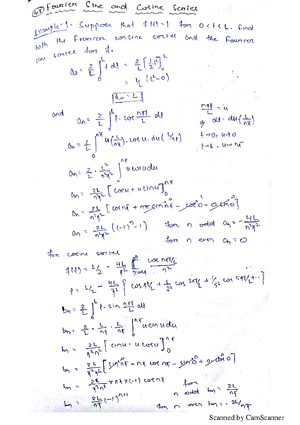 Fourier Sine and Cosine Series
Example-1. Suppose that f(t)=t for 0<t<L. Find
both the Fourier cosine series and the Fourier
sine series for f.
a₀ = 2/L ∫₀ᴸ t dt = 2/L [½t²]₀ᴸ
= 1/L (L²-0)
a₀ = L
and aₙ = 2/L ∫₀ᴸ t. cos nπt/L dt
nπt/L = u
dt = du(L/nπ)
t→0, u→0
t→L u→nπ
aₙ = 2/L ∫₀ u(L/nπ). cos u. du(L/nπ)
aₙ = 2/L . L²/n²π² ∫₀ⁿᵖ u cos u du
aₙ = 2L/n²π² [cos u + u sin u]₀ⁿᵖ
aₙ = 2L/n²π² [cos nπ + nπ sin nπ - cos 0 - 0 sin 0]
aₙ = 2L/n²π² ((-1)ⁿ-1) for n odd aₙ = -4L/n²π²
for n even aₙ = 0
for cosine series
f(t) = L/2 - 4L/π² Σ cos nπt/L / n²
t = L/2 - 4L/π² { cos πt/L + 1/3² cos 3πt/L + 1/5² cos 5πt/L + ... }
bₙ = 2/L ∫₀ᴸ t. sin nπt/L dt
bₙ = 2/L . L/nπ . L/nπ ∫₀ⁿᵖ u sin u du
bₙ = 2L/n²π² [sin u - u cos u]₀ⁿᵖ
bₙ = 2L/n²π² [sin nπ - nπ cos nπ - sin 0 + 0 cos 0]
bₙ = 2L/n²π² × nπ × (-1) cos nπ
bₙ = 2L/nπ (-1)ⁿ⁺¹
for n odd bₙ = 2L/nπ
for n even bₙ = -2L/nπ
Scanned by CamScanner